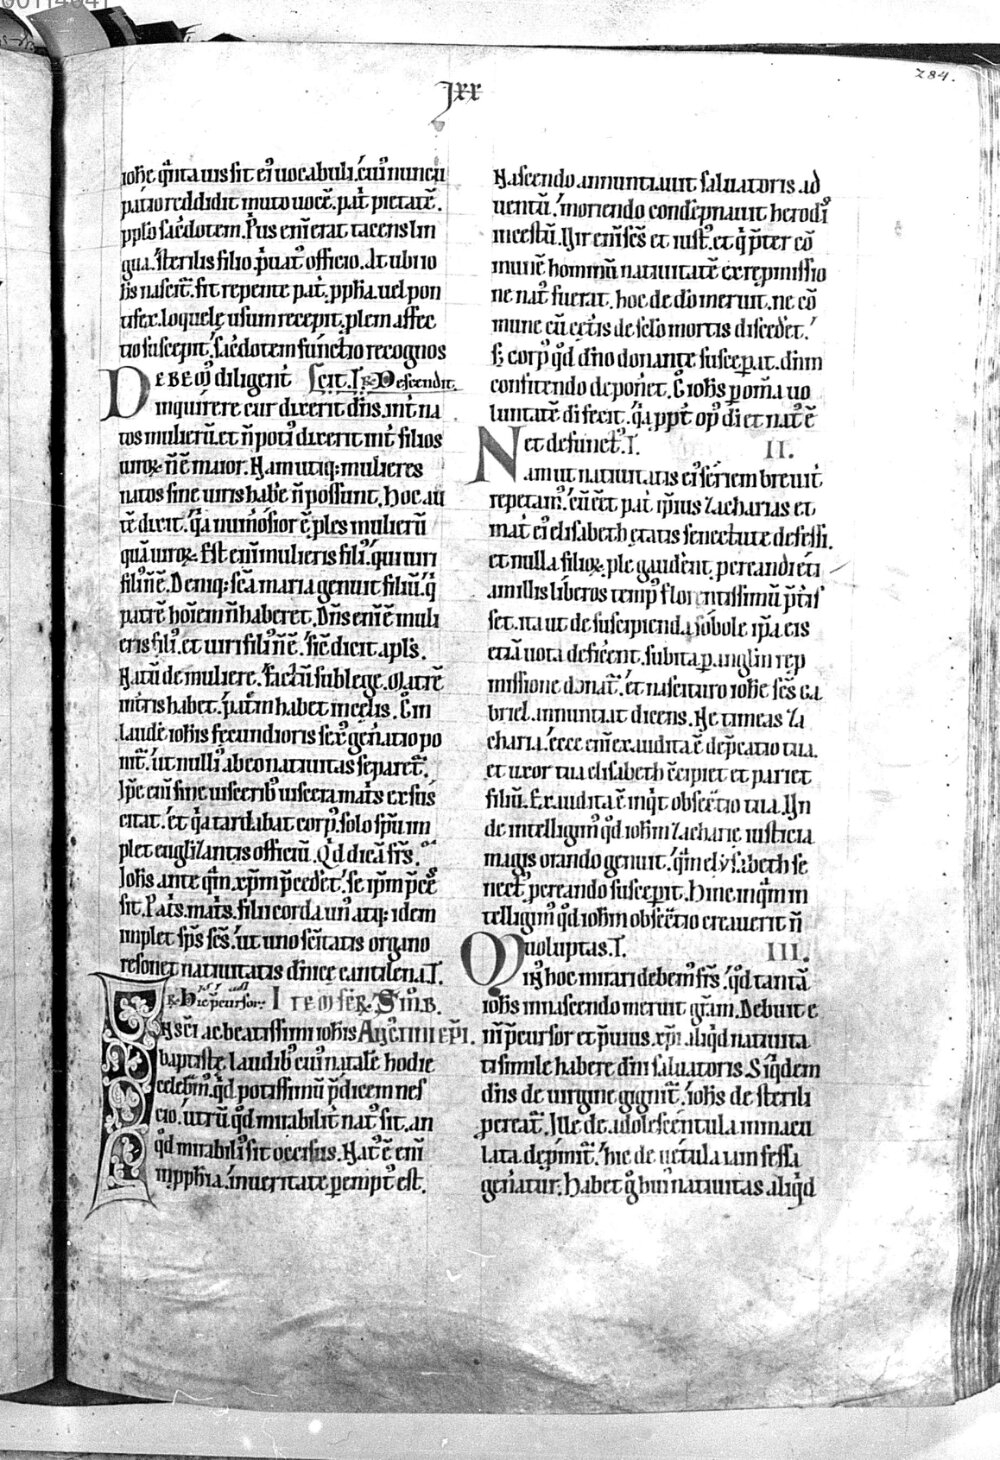 Jxx
284.
ioħe q̃nta uis sit ei᷒ uocabuli. cui᷒ nuncu
patio reddidit muto uocē. pat̃ pietatē.
pp̃lo sac̃dotem. P̃us eni᷒ erat tacens lin
gua. sterilis filio. p̃uat᷒ officio. At ubi io
ħs nascit̃. fit repente pat̃. ppħa. uel pon
tifex. loquelę usum recepit. plem affec
tio suscepit. sac̃dotem functio recognos
cit. T. R. Descendit.
DEBEm᷒ diligent̃
inquirere cur dixerit dñs. int̃ na
tos mulierū. et ñ poti᷒ dixerit int̃ filios
uiroꝝ ñ ē maior. Nam utiq; mulieres
natos sine uiris habe᷒ ñ possunt. Hoc au
tē dicit. q̃a num̃osior ē ples mulierū
quā uiroꝝ. Est eni᷒ mulieris fili᷒. qui uiri
fili᷒ ñ ē. Deniq; sc̃a maria genuit filiū. q̃
patrē hoiēm ñ haberet. Dñs eni᷒ ē muli
eris fili᷒. et uiri fili᷒ ñ ē. sic̃ dicit apl̃s.
Natū de muliere. factū sub lege. Matrē
in t̃ris habet. patrem habet in cęlis. Cui᷒
laudē ioħis fęcundioris sex᷒ gen̄atio po
nit̃. ut nulli᷒ ab eo natiuitas separet̃.
Ip̃e eni᷒ sine uiscerib᷒ uiscera mat̃s exsus
citat. et q̃a tardabat corp᷒. solo sp̃u im
plet euglizantis officiū. Qd̃ dicā fr̃s.
Ioħs. ante q̃m xp̃m p̃cedet̃. se ip̃m p̃ces
sit. Pat̃s. mat̃s. filii corda un᷒ atq; idem
implet sp̃s sc̃s. ut uno sc̃itatis organo
resonet natiuitatis dñicę cantilena. T.
R. Hic p̃cursor. ITEM SER. SM̃B.
IN sc̃i ac beatissimi ioħis AUG̃TINI EP̃I.
baptistę laudib᷒ cui᷒ natalē hodie
celebm᷒. qd̃ potissimū p̃dicem nes
cio. utrū qd̃ mirabilit̃ nat᷒ sit. an
qd̃ mirabili᷒ sit occisus. Nat᷒ ē eni᷒
in ppħia. in ueritate pempt᷒ est.
Nascendo. annuntiauit saluatoris ad
uentū. moriendo condẽpnauit herodis
incestū. Vir eni᷒ sc̃s et iust᷒. et q̃ p̃ter cō
munē hominū natiuitatē ex rep̃missio
ne nat᷒ fuerat. hoc de dō meruit. ne cō
mune cū cet̃is de sc̃lo mortis discedet̃.
s; corp᷒ qd̃ dño donante suscepat. dñm
confitendo deponet̃. C᷒ ioħis p om̃a uo
luntatē di fecit. q̃a ppt̃ op᷒ di et nat᷒ ē
et defunct᷒. T. II.
Nam ut natiuitatis ei᷒ seriem breuit̃
repetam᷒. cū eēt pat̃ ip̃ius zacharias et
mat̃ ei᷒ elisabeth ętatis senectute defessi.
et nulla filioꝝ. ple gaudent̃. pereandi et̃i
am illis liberos temp᷒ florentissimū p̃t̃is
set. ita ut de suscipienda sobole ip̃a eis
etiā uota deficent̃. subita p anglm rep
missione donat̃. et nascituro ioħe sc̃s ga
briel. annuntiat dicens. Ne timeas za
charia. ecce eni᷒ exaudita ē dep̃catio tua.
et uxor tua elisabeth c̃cipiet et pariet
filiū. Exaudita ē inq̃t obsec̃tio tua. Vn
de intelligim᷒ qd̃ ioħm zacharię iusticia
magis orando genuit. q̃m elysabeth se
nect᷒ pereando suscepit. Hinc inq̃m in
telligim᷒ qd̃ ioħm obsec̃tio creauerit ñ
uoluptas. T. III.
Quis hoc mirari debem᷒ fr̃s. qd̃ tantā
ioħis in nascendo meruit gr̃am. Debuit e
ni᷒ p̃cursor et p̃uius xp̃i. aliqd̃ natiuita
ti simile habere dñi saluatoris. Siqdem
dñs de uirgine gignit̃. ioħis de sterili
pereat̃. Ille de adolescentula inmacu
lata dep̃mit̃. hic de uetula iam fessa
gen̄atur. Habet g̊ hui᷒ natiuitas aliqd̃